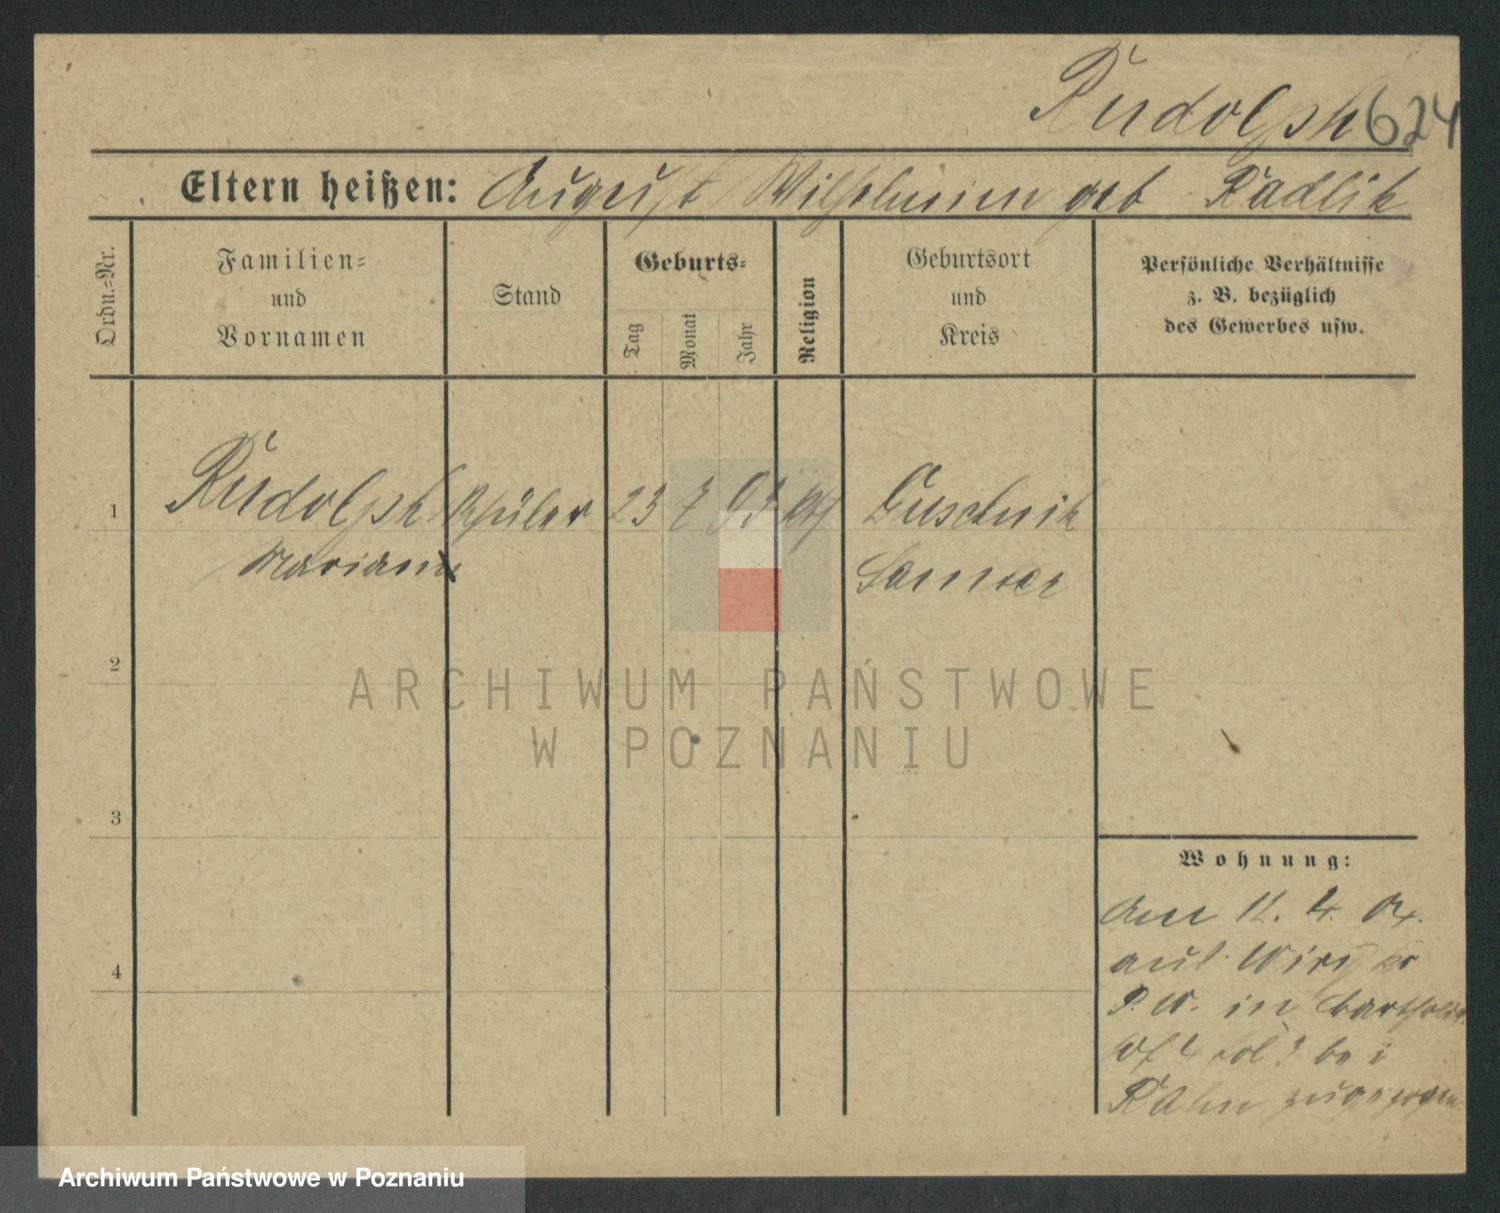 Rudolph 624
Eltern heißen: August Wilhelmine geb Radlik
Ordn.-Nr.
Familien-
und
Vornamen
Stand
Geburts-
Tag
Monat
Jahr
Religion
Geburtsort
und
Kreis
Persönliche Verhältnisse
z. B. bezüglich
des Gewerbes usw.
1 Rudolph Schüler 23 7 93 Guschnik
Mariann Samter
2
ARCHIWUM PAŃSTWOWE
W POZNANIU
3
4
Wohnung:
Am 11. 4. 04.
aus
in
bei
Rahn zugezogen
Archiwum Państwowe w Poznaniu